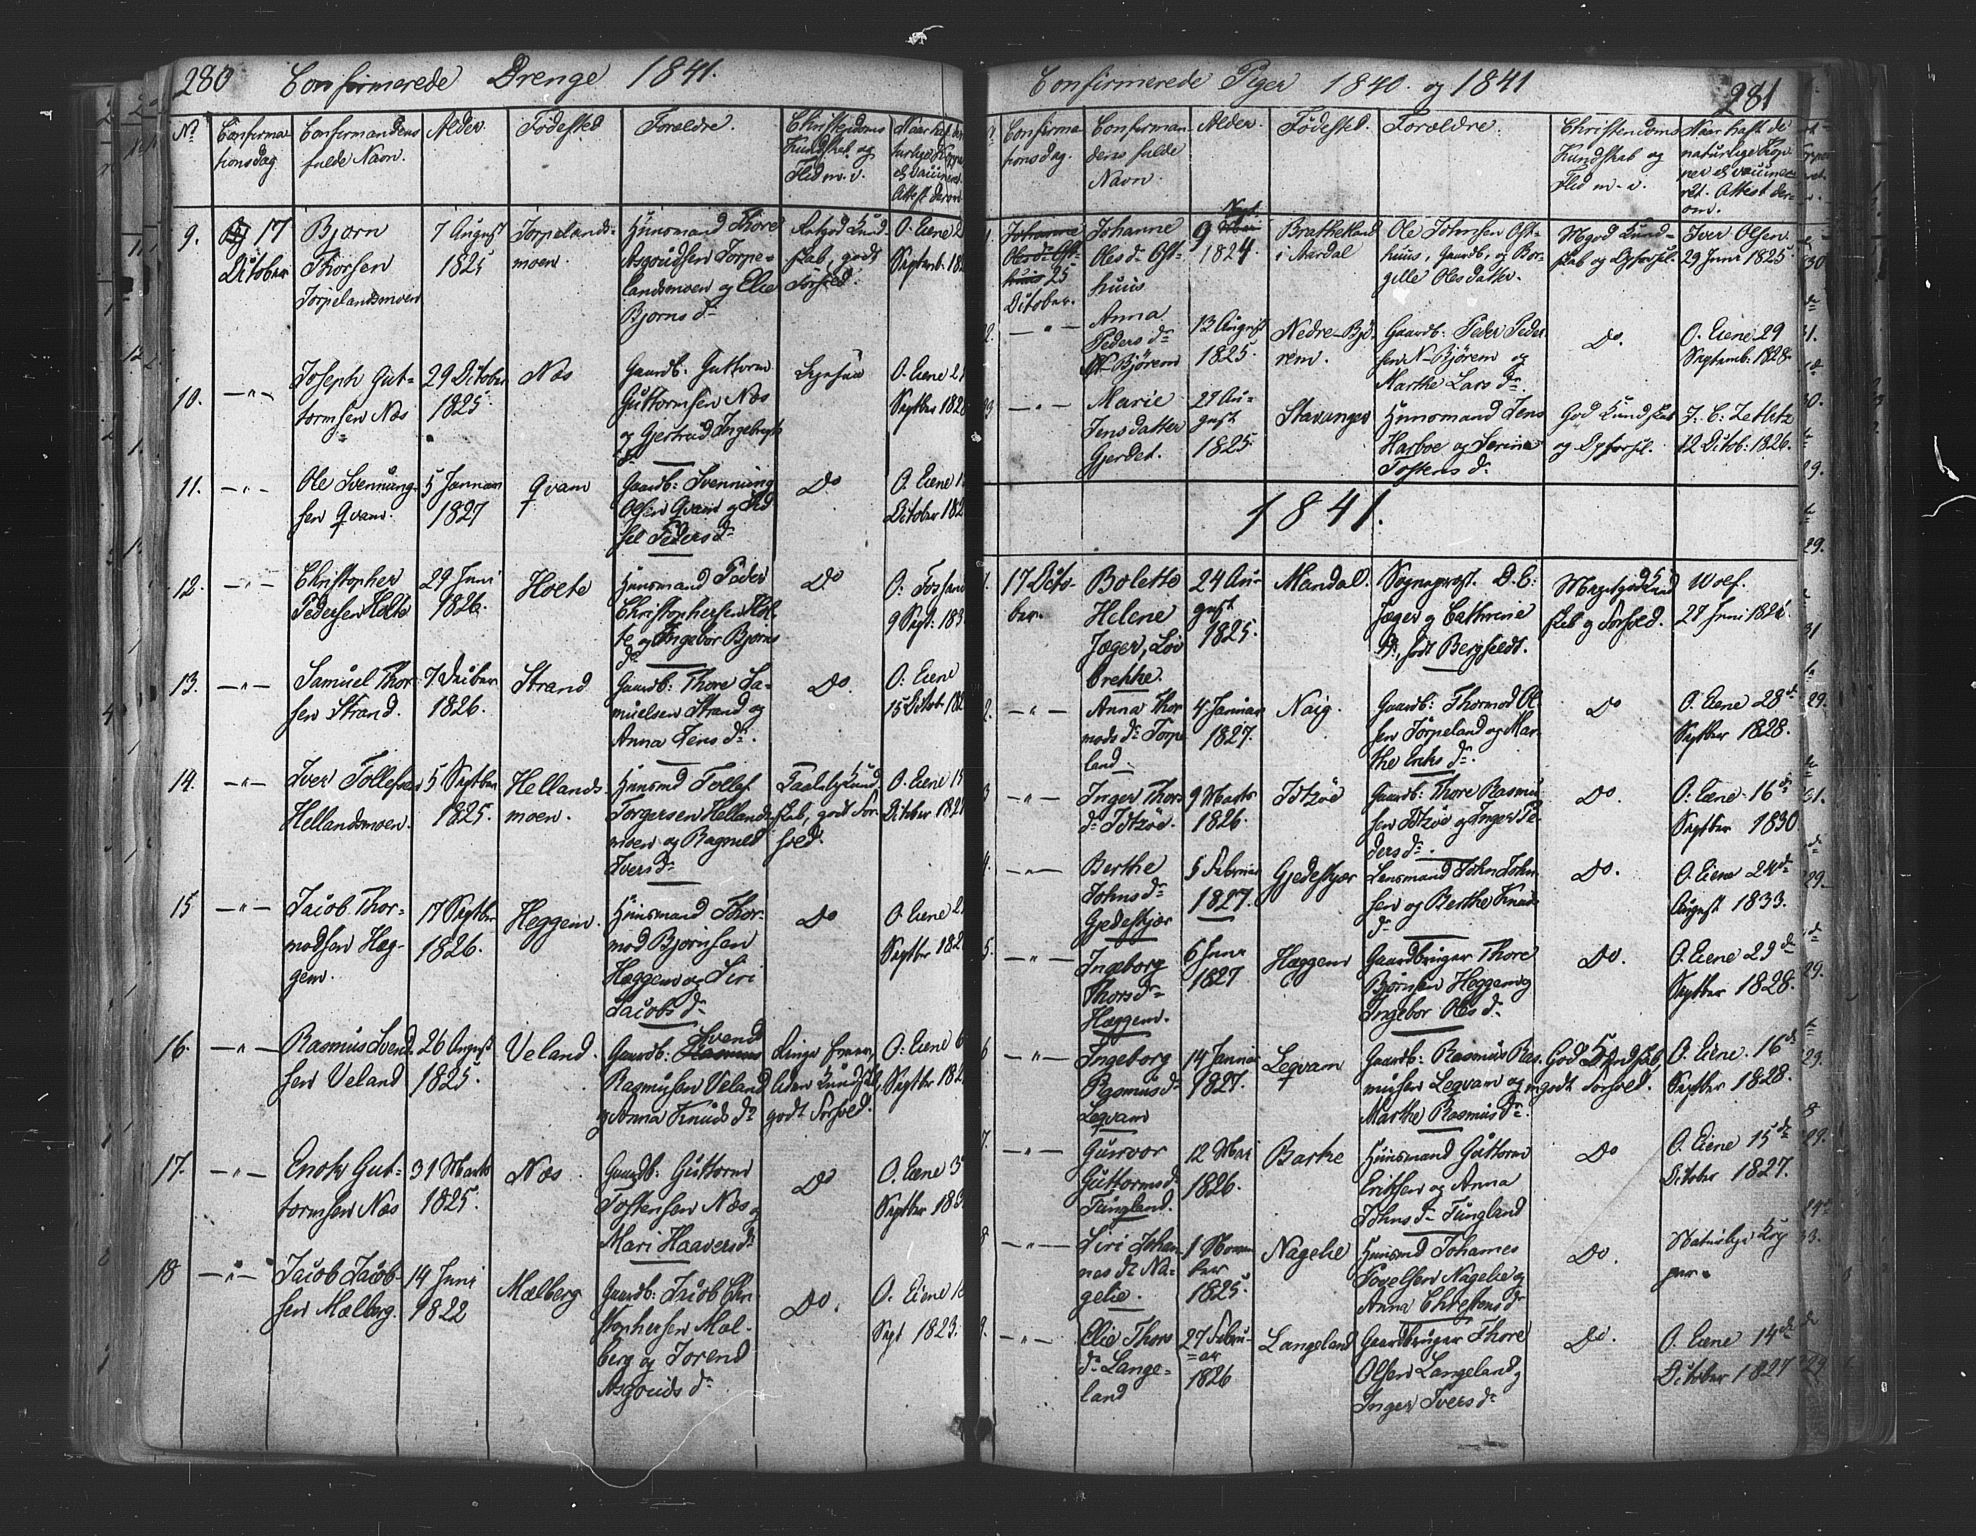 280 Confirmerede Drenge 1841.
No
Confirma
tionsdag
Confirmandens
fulde Navn.
Alder.
Fødested
Forældre.
Christendoms
Kundskab og
Flid m. v.
9.
17
October
Bjørn
Thorsen
Torpelandsmoen
7 August
1825
Torpelands-
moen.
Huusmand Thore
Asgoudsen Torpe-
landsmoen og Elie
Bjørns Dr
O. Eiene
Septemb.
10.
— " —
Joseph Gut-
tormsen Næs
29 October
1825
Næs
Gaardb: Guttorm
Guttormsen Næs
og Gjertrud Ingebregts
Dr
O. Eiene
Septbr
11.
— " —
Ole Svennung-
sen Qvam.
5 Januar
1827
Qvam
Gaardb: Svennung
Olsen Qvam og
Peders Dr
Do
O. Eiene
October
12.
— " —
Christopher
Pedersen Holte
29 Juni
1826.
Holte
Huusmand Peder
Christophersen Hol-
te og Ingebor Bjørns
Dr
Do
O. Fossan
9 Sept:
13.
— " —
Samuel Thor-
sen Strand.
7 Decbr
1826.
Strand
Gaardb: Thore Sa-
muelsen Strand og
Anna Jens Dr.
Do.
O. Eiene
15 Octob.
14.
— " —
Iver Tollefsen
Hellandsmoen.
5 Septber
1825.
Hellands-
moen.
Huusmd Tollef
Torgersen Hellands-
moen og Ragnild
Ivers Dr
Taalelig Kund
skab, godt For-
hold.
O. Eiene
October
15
— " —
Jacob Thor-
modsen Heg-
gem.
17 Septbr
1826.
Heggem.
Huusmand Thor-
mod Bjørnsen
Heggem og Siri
Jacobs Dr
Do
O. Eiene
Septbr
16.
— " —
Rasmus Svend-
sen Veland
26 August
1825.
Veland.
Gaardb: Svend
Rasmusen Veland
og Anna Knuds Dr
liden Kundskab
godt Forhold.
O. Eiene
Septbr
17.
— " —
Enok Gut-
tormsen Næs
31 Marts
1825.
Næs
Gaardb: Guttorm
Tostensen Næs og
Mari Haavers Dr
Do
O. Eiene
Septbr
18
— " —
Jacob Jacob-
sen Mælberg.
14 Juni
1822
Mælberg
Gaardb: Jacob Chri-
stophersen Mæl-
berg og Torend
Asgouds Dr
Do.
O. Eiene
Sept 1823.
Confirmerede Piger 1840. og 1841
281
Confirma
tionsdag.
Confirman
dens fulde
Navn.
Alder.
Fødested.
Forældre.
Christendoms
Kundskab og
Flid m. v.
Naar haft de
naturlige Kop-
per el. vaccine-
ret. Attest der-
om.
Johanne
Oles Dr Ost-
huus 25
October.
Johanne
Oles Dr Ost-
huus
9 Sept.
1824.
Bratheland
i Aardal
Ole Johnsen Ost-
huus, Gaardb, og Bor-
gille Olesdatter.
Mgod Kund-
skab og Opførsel.
Iver Olsen.
29 Juni 1825.
2.
— " —
Anna
Peders Dr
N. Bjørem
13 August
1825.
Nedre-Bjö-
rem.
Gaardb: Peder Peder
sen N. Bjørem og
Marthe Lars Dr.
Do.
O. Eiene 29
Septemb. 1828.
— " —
Marie
Jensdatter
Gjerdet.
27 Au-
gust
1825
Stavanger
Huusmand Jens
Harboe og Serina
Tostens Dr
God Kundskab
og Opførsel.
J. C. Zetlitz
12 Octob: 1826.
1841.
1.
17 Octo-
ber.
Bolette
Helene
Jæger, Löv
brekke.
24 Au-
gust
1825.
Mandal.
Sogneprost. D. C.
Jæger og Cathrine
B., født Bergfeldt.
Meget god Kund
skab og Forhold.
Woef.
27 Juni 1826.
2.
— " —
Anna Thor
mods Dr Torpe
land.
4 Januar
1827.
Naig.
Gaardb: Thormod Ol-
sen Torpeland og Mar-
the Eriks Dr.
Do
O. Eiene 28de
Septber 1828.
3
— " —
Inger Thors
Dr Idtzöe.
9 Marts
1826.
Idtzöe
Gaardb: Thore Rasmus
sen Idtzöe og Inger Pe-
ders Dr.
Do.
O. Eiene 16de
Septber 1830
4.
— " —
Berthe
Johns Dr
Gjedeskjær
5 Februar
1827.
Gjedeskjær
Lensmand John John-
sen og Berthe Knuds
Dr
Do.
O. Eiene 24de
August 1833.
5.
— " —
Ingeborg
Thors Dr
Hæggem.
1827
Hæggem
Gaardbruger Thore
Bjørnsen Heggem og
Ingebor Oles Dr
Do.
O. Eiene 29de
Septber 1828.
6
— " —
Ingeborg
Rasmus Dr
Leqvam
14 Januar
1827.
Leqvam
Gaardb: Rasmus Ras-
musen Leqvam og
Marthe Rasmus Dr.
God Kundskab,
godt Forhold.
O. Eiene 16de
Septber 1828.
7.
— " —
Gurvor
Guttorms Dr
Tungland.
12 Mai
1826.
Barke
Huusmand Guttorm
Eriksen og Anna
Johns Dr Tungland
Do
O. Eiene 15de
October 1827.
8
— " —
Siri Johan-
nes Dr Na-
gelie.
1 Novem-
ber
1825.
Nagelie
Huusmd Johannes
Povelsen Nagelie og
Anna Chrestens Dr
Do.
Naturlige Kop-
per.
9.
— " —
Elie Thors
Dr Lange-
land
27 Febru-
ar
1826
Langeland
Gaardbruger Thore
Olsen Langeland og
Inger Ivers Dr
Do.
O. Eiene 14de
October 1827